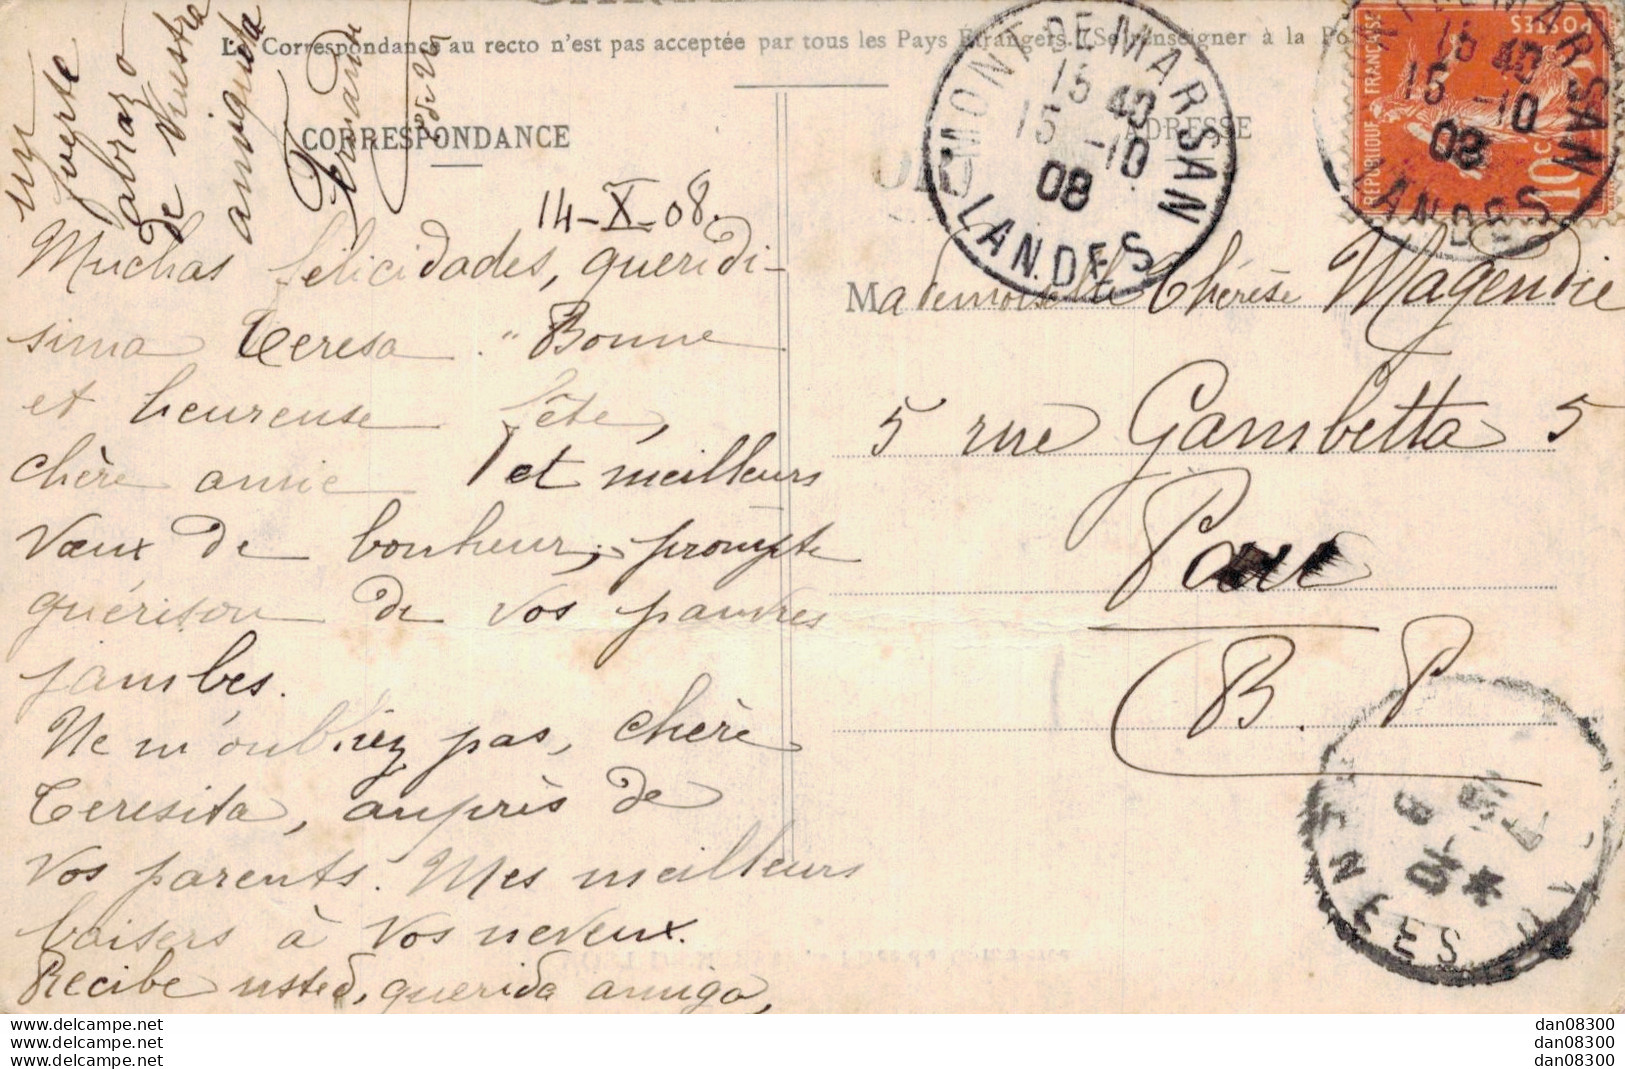 La Correspondance au recto n'est pas acceptée par tous les Pays Etrangers. (Se renseigner à la Po
CORRESPONDANCE
ADRESSE
14-X-08.
Muchas felicidades, queridi-
sima Teresa. "Bonne
et heureuse fête,
chère amie et meilleurs
vœux de bonheur, prompte
guérison de vos pauvres
jambes.
Ne m'oubliez pas, chère
Teresita, auprès de
vos parents. Mes meilleurs
baisers à vos neveux.
Recibe usted, querida amiga,
un fuerte
abrazo
de vuestra
amiguita
Fernande
MONT-DE-MARSAN
15 40
15 -10
08
LANDES
MONT-DE-MARSAN
15 40
15 -10
08
LANDES
REPUBLIQUE FRANÇAISE
POSTES
10 C.
Mademoiselle Thérèse Magendie
5 rue Gambetta 5
Pau
B. P.
www.delcampe.net
www.delcampe.net
www.delcampe.net
dan08300
dan08300
dan08300